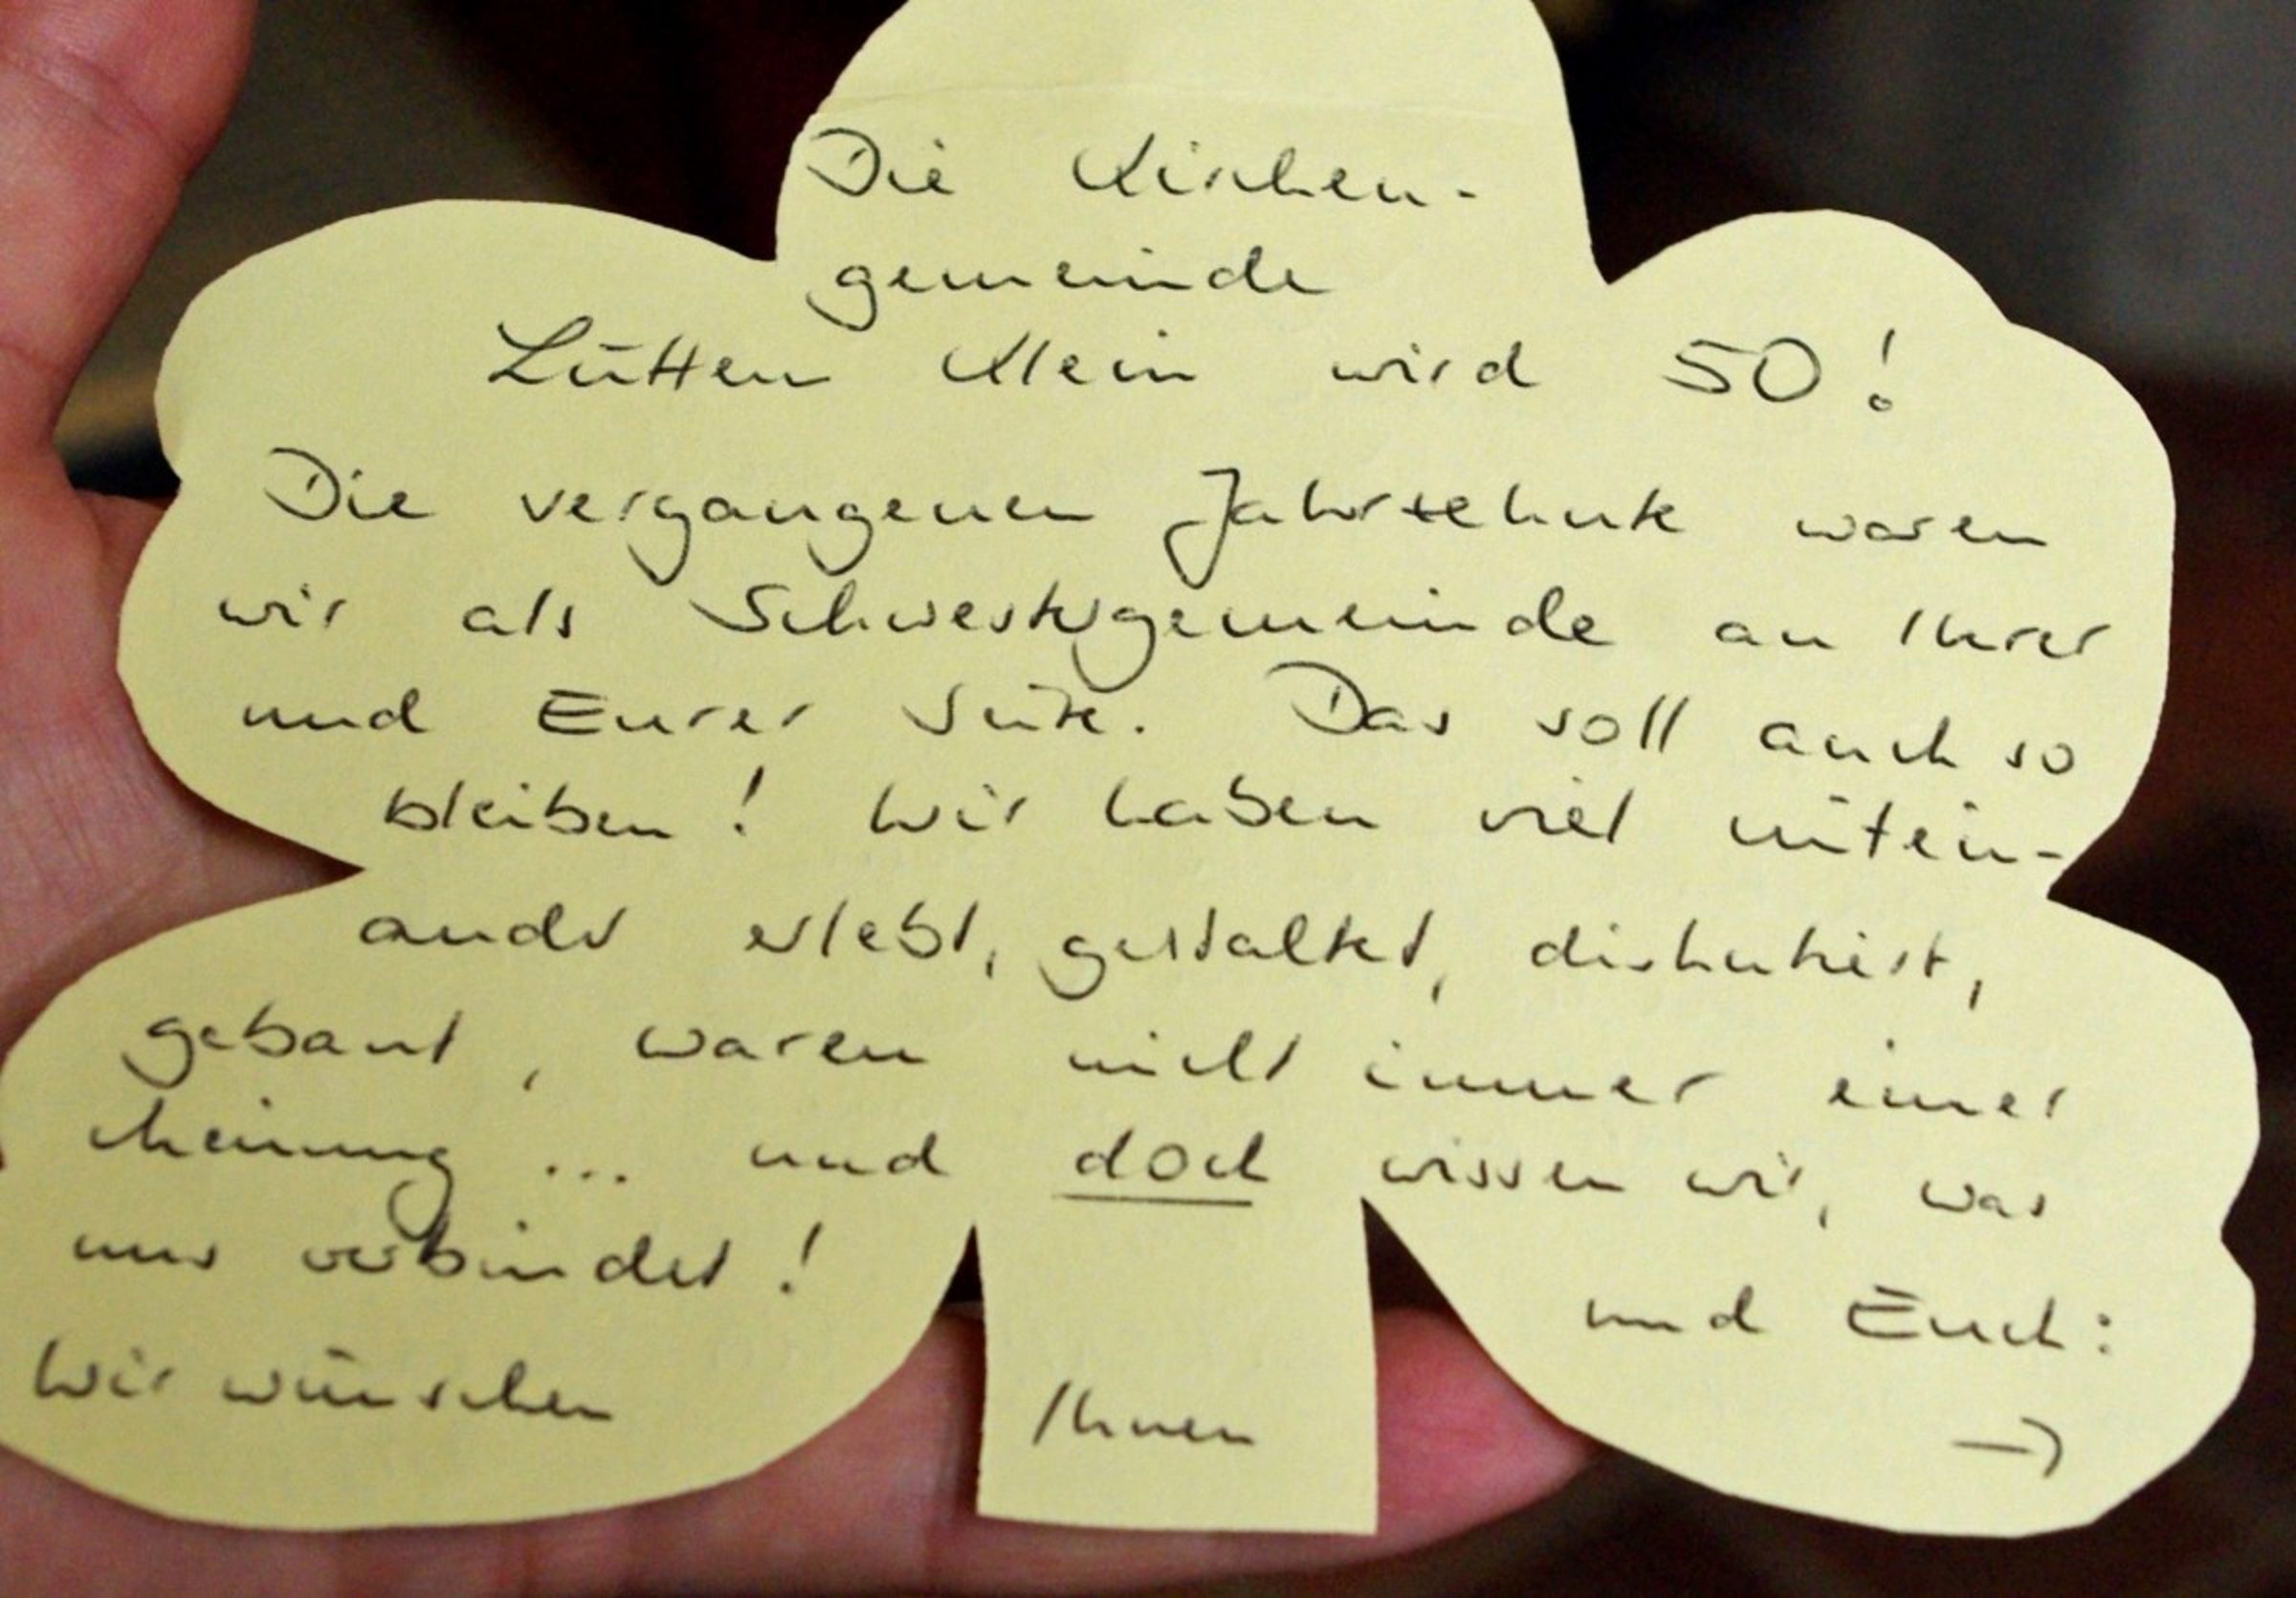 Die Kirchen-
gemeinde
Lütten Klein wird 50!
Die vergangenen Jahrzehnte waren
wir als Schwestergemeinde an Ihrer
und Eurer Seite. Das soll auch so
bleiben! Wir haben viel mitein-
ander erlebt, gestaltet, diskutiert,
gebaut, waren nicht immer einer
Meinung ... und doch wissen wir, was
uns verbindet!
Wir wünschen Ihnen und Euch:
→